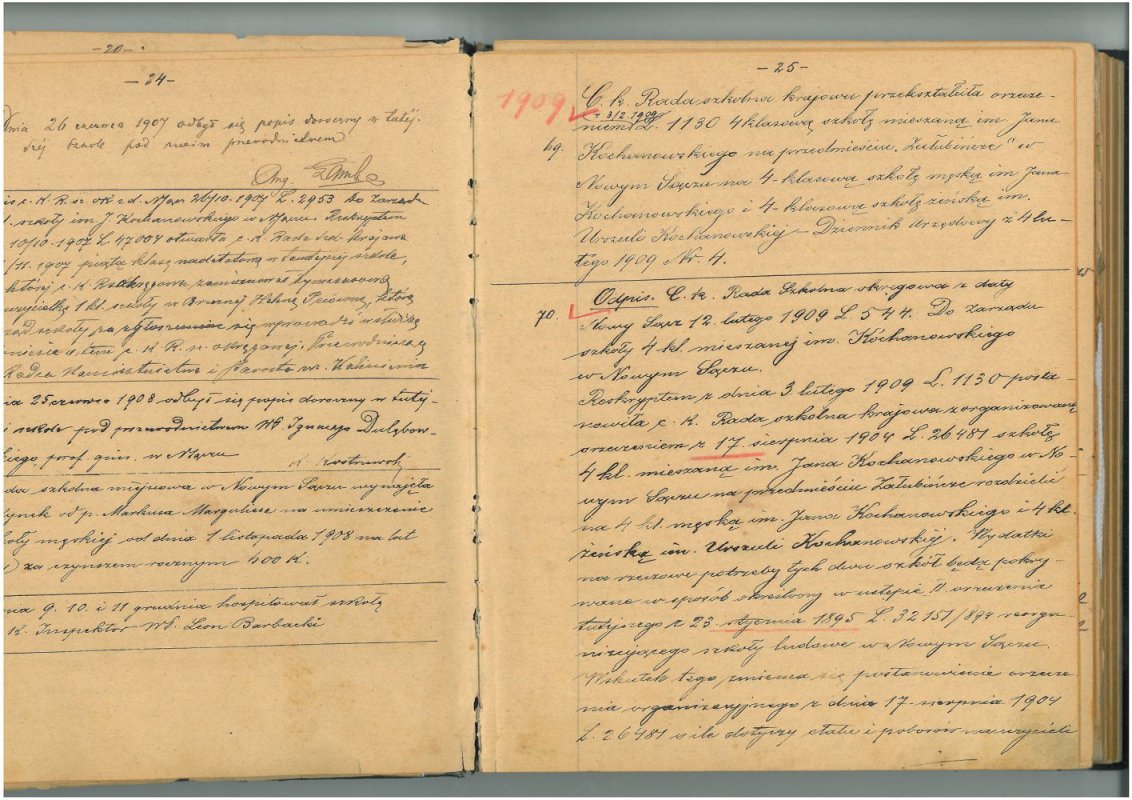 -20-
-24-
Dnia 26 czerwca 1907 odbył się popis doroczny w tutej-
szej szkole pod moim przewodnictwem
Aug.
is c. K R. sz. ok z d. 26/10. 1907 L. 2953 do Zarządu
szkoły im. J. Kochanowskiego w N. Sączu. Reskryptem
10/10. 1907 L. 47004 otwarła c. K Rada szk. krajowa
/11. 1907 piątą klasę nadetatową w tamtejszej szkole,
której c. K. R. okręgowa zamianowała tymczasową
nauczycielką 1 kl. szkoły w
szkoły po zgłoszeniu się wprowadzi w służbę
doniesie o tem c. K R. sz. okręgowej. Przewodniczący
Radca Namiestnictwa i Starosta
ia 25 czerwca 1908 odbył się popis doroczny w tutej-
szkole pod przewodnictwem Wp. Ignacego Dulębow-
kiego, prof. gim. w N. Sączu
da szkolna miejscowa w Nowym Sączu wynajęła
dynek od p. Markusa Margulisa na umieszczenie
szkoły męskiej od dnia 1 listopada 1908 na lat
za czynszem rocznym 400 K.
nia 9. 10. i 11 grudnia hospitował szkołę
K. Inspektor Wp. Leon Barbacki
-25-
1909 C. k. Rada szkolna krajowa przekształciła orzecze-
z 3/2. 1909
niem L. 1130 4 klasową szkołę mieszaną im. Jana
69. Kochanowskiego na przedmieściu „Załubińcze" w
Nowym Sączu na 4-klasową szkołę męską im Jana
Kochanowskiego i 4-klasową szkołę żeńską im.
Urszuli Kochanowskiej – Dziennik urzędowy z 4 lu-
tego 1909 Nr. 4.
70. Odpis. C. k. Rada Szkolna okręgowa z daty
Nowy Sącz 12. lutego 1909 L. 544. Do Zarządu
szkoły 4 kl. mieszanej im. Kochanowskiego
w Nowym Sączu.
Reskryptem z dnia 3 lutego 1909 L. 1130 posta-
nowiła c. K. Rada szkolna krajowa zorganizowaną
orzeczeniem z 17. sierpnia 1904 L. 26481 szkołę
4 kl. mieszaną im. Jana Kochanowskiego w No-
wym Sączu na przedmieściu Załubińcze rozdzielić
na 4 kl. męską im. Jana Kochanowskiego i 4 kl.
żeńską im. Urszuli Kochanowskiej. Wydatki
na rzeczowe potrzeby tych dwu szkół będą pokry-
wane w sposób określony w ustępie II orzeczenia
tutejszego z 23 stycznia 1895 L. 32151/894 reorga-
nizującego szkoły ludowe w Nowym Sączu.
Wskutek tego zmienia się postanowienie orzecze-
nia organizacyjnego z dnia 17. sierpnia 1904
L. 26481 o ile dotyczy etatu i poborów nauczycieli